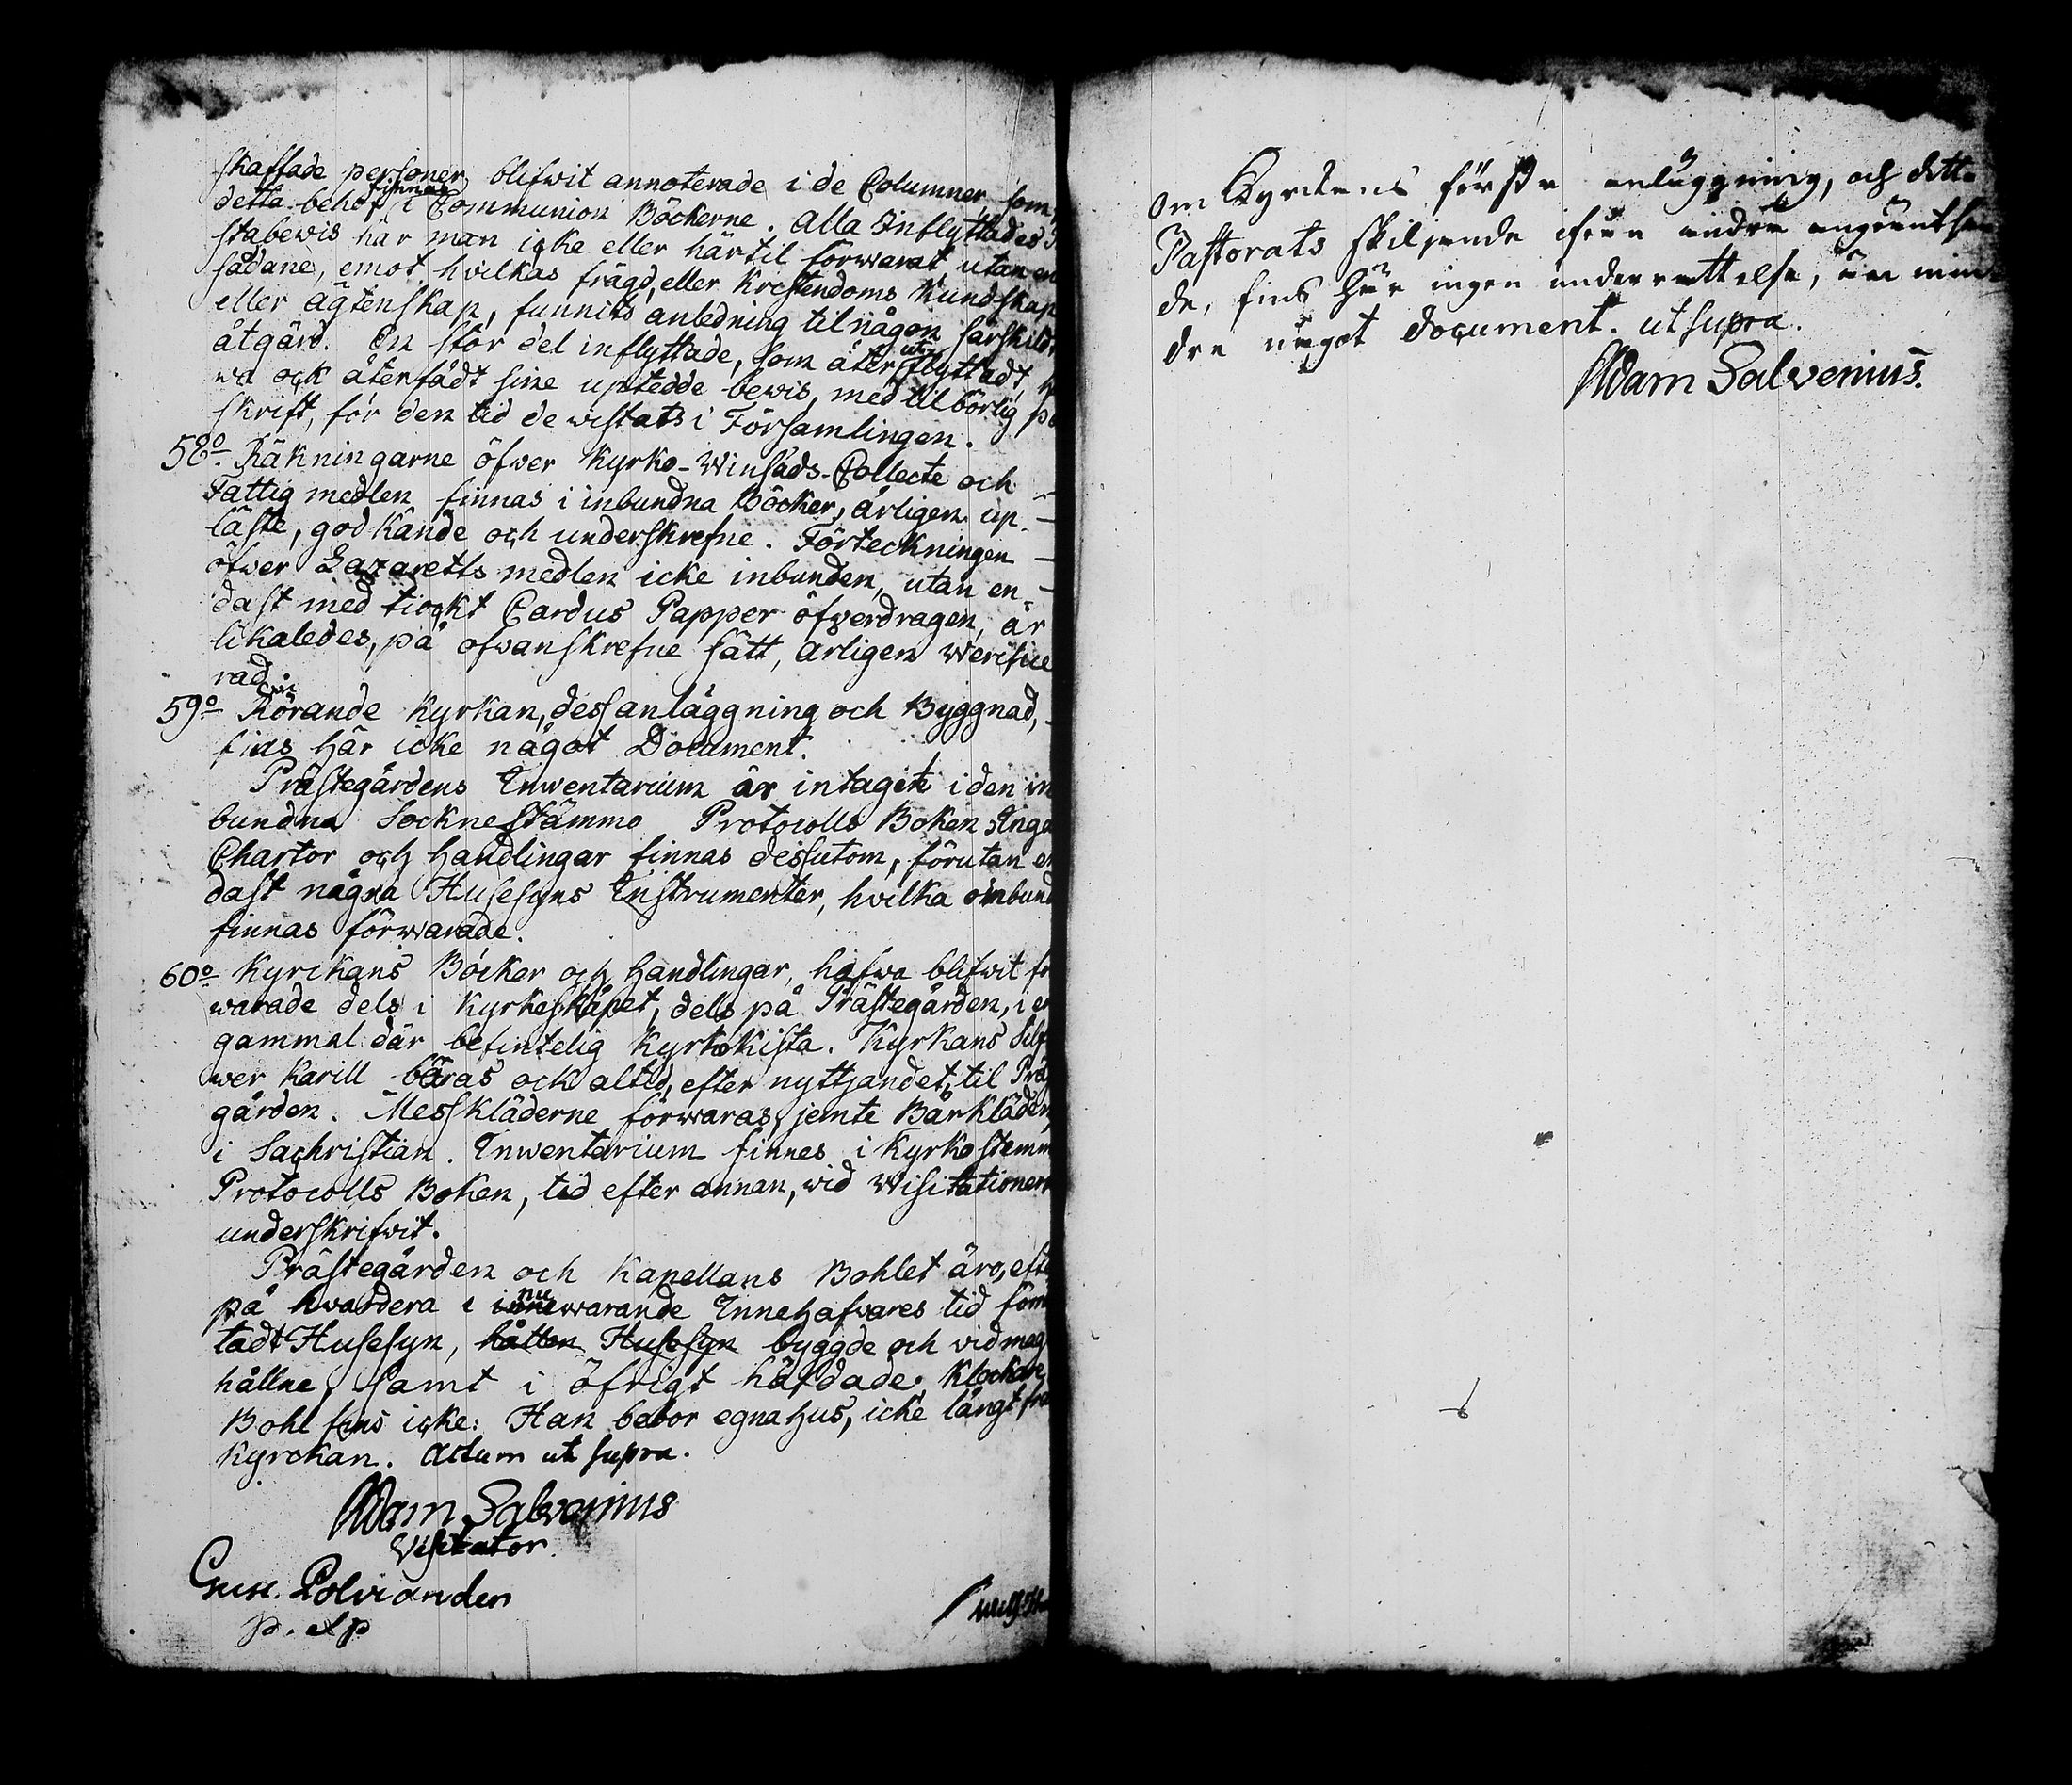 skaffade personer blifwit annoterade i de Columner, som
detta behof finnas i Communion Böckerne. Alla Inflyttades
stabewis har man icke eller härtil förwarat, utan en
sådane, emot hvilkas frägd, eller Kristendoms Kundskap
eller ägtenskap, funnits anledning til någon särskild
åtgärd. En stor del inflyttade, som åter utflyttadt,
wa ock återfådt sine uptedde bewis, med tilbörlig på
skrift, för den tid de wistats i Församlingen.
58o. Räkningarne öfwer Kyrko-Winsäds-Collecte och
Fattig medlen finnas i inbundna Böcker, årligen up-
läste, godkände och underskrefne. Förteckningen
öfwer Lazaretts medlen icke inbunden, utan en-
dast med tiockt Cardus Papper öfwerdragen, är
likaledes, på ofwanskrefne sätt, årligen werifice
rad.
59o Rörande Kyrkan, dess anläggning och Byggnad,
fins här icke något Document.
Prästegårdens Inwentarium är intagit i den in
bundna Sockne Stämmo Protocolls Boken. Inga
Chartor och Handlingar finnas dessutom, förutan en
dast några Husesyns Instrumenter, hvilka oinbund
finnas förwarade.
60o Kyrckans Böcker och Handlingar, hafwa blifwit för
warade dels i Kyrkeskåpet, dels på Prästegården, i en
gammal där befintelig Kyrkokista. Kyrkans Silf
wer Karill bäras ock altid, efter nyttjandet, til Präs
gården. Messkläderne förwaras, jemte Bårkläden,
i Sachristian. Inwentarium finnes i Kyrkostemm
Protocolls Boken, tid efter annan, wid Wisitationern
underskrifwit.
Prästegården och Kapellans Bohlet äro, efte
på hwardera i nu warande Innehafwares tid förrä
tadt Husesyn, hållen Husesyn byggde och vidmagt
hållne, samt i öfrigt häfdade. Klockare
Bohl fins icke: Han bebor egna hus, icke långt från
Kyrckan. Actum ut supra.
Adam Salvenius
Visitator.
Gust. Polviander
p. &p
om Kyrckans första anläggning, och detta
Pastorats skiljande ifrån andra angräntsan
de, fins här ingen underrättelse, än min
dre något document. ut supra.
Adam Salvenius.